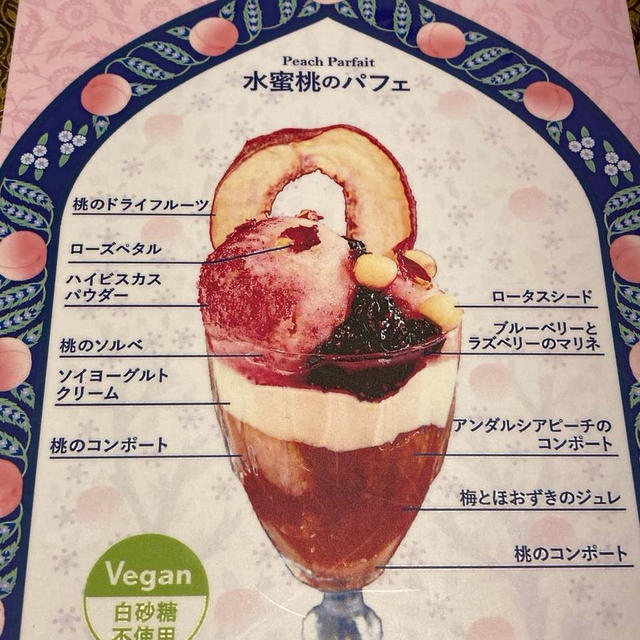 Peach Parfait
水蜜桃のパフェ
桃のドライフルーツ
ローズペタル
ハイビスカス
パウダー
桃のソルベ
ソイヨーグルト
クリーム
桃のコンポート
ロータスシード
ブルーベリーと
ラズベリーのマリネ
アンダルシアピーチの
コンポート
梅とほおずきのジュレ
桃のコンポート
Vegan
白砂糖
不使用